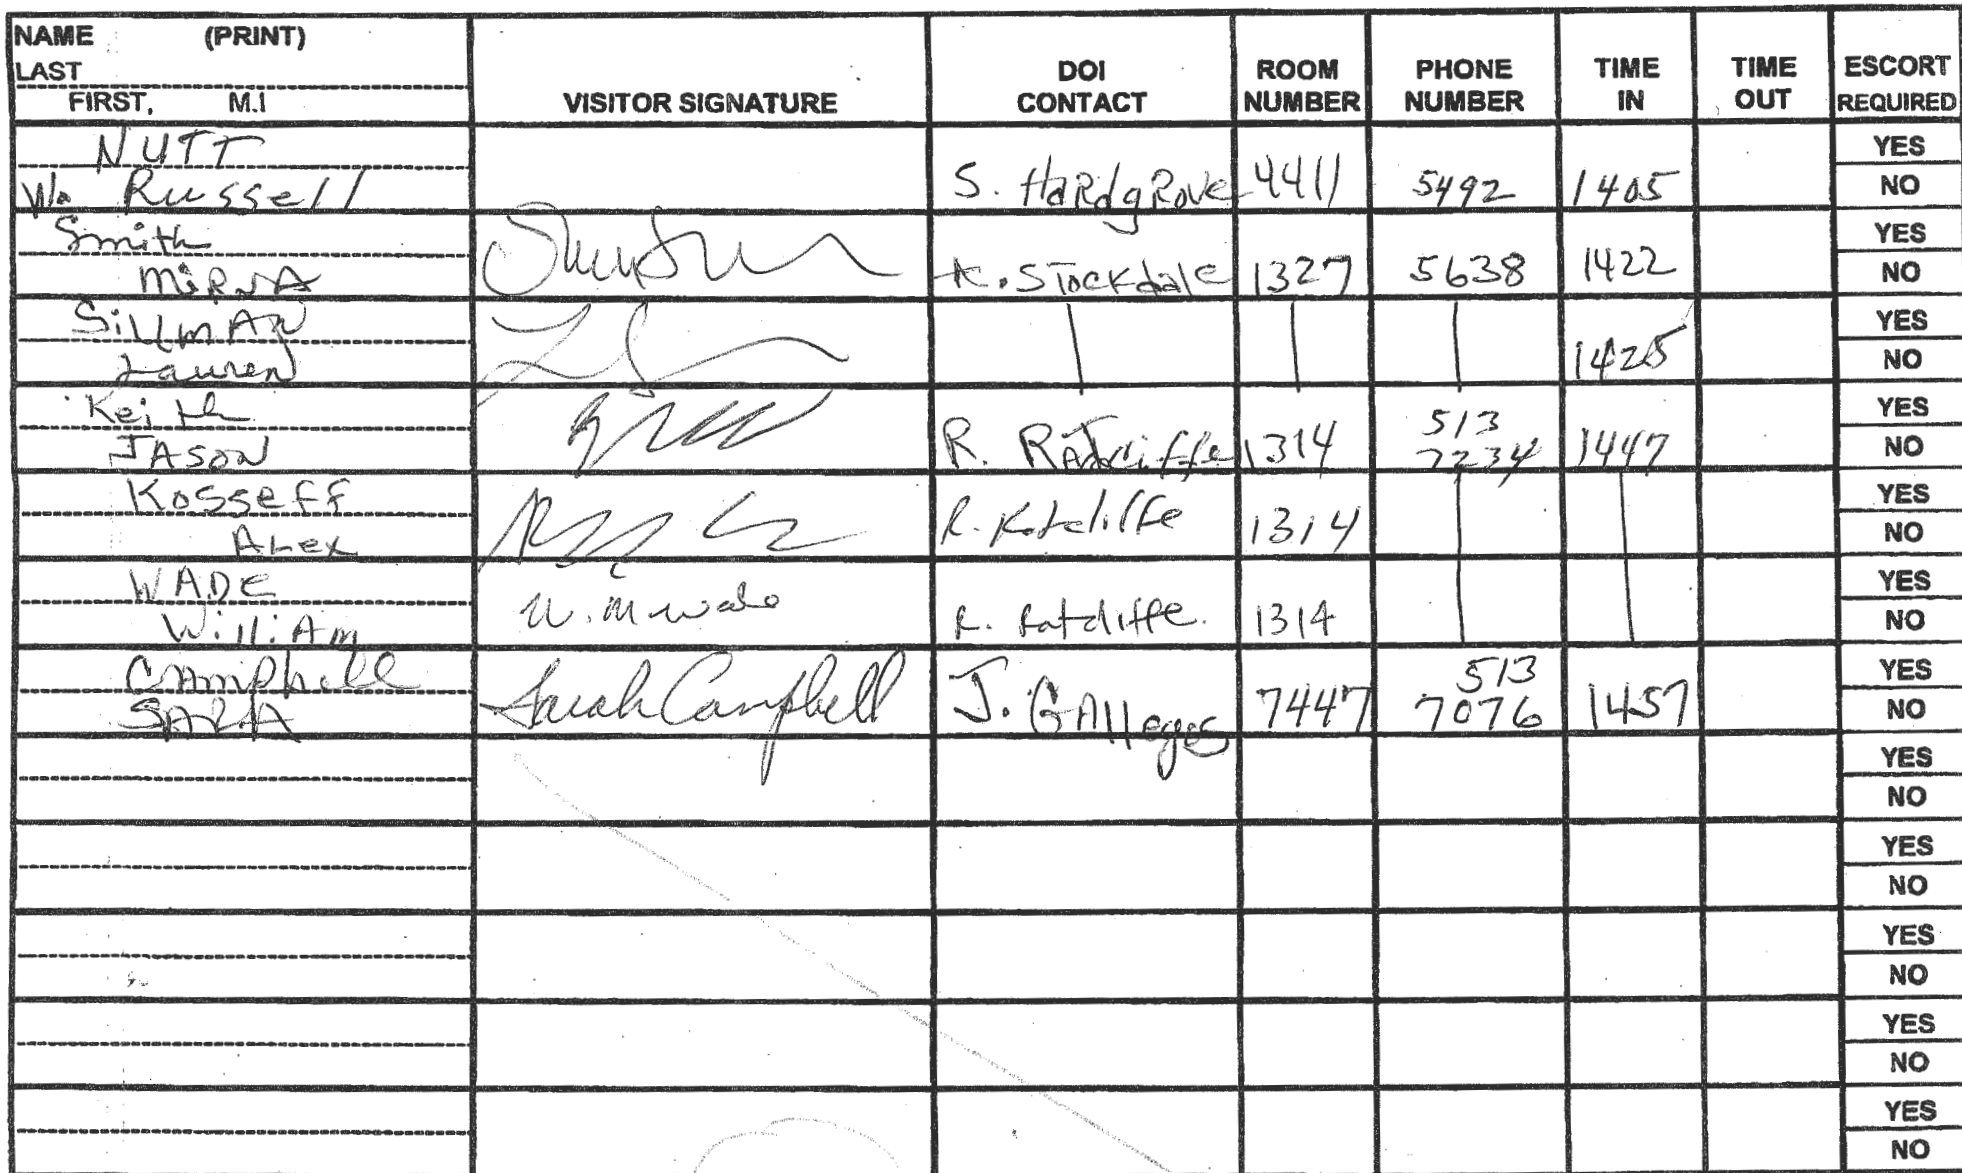 NAME (PRINT)
LAST
FIRST, M.I
VISITOR SIGNATURE
DOI CONTACT
ROOM NUMBER
PHONE NUMBER
TIME IN
TIME OUT
ESCORT REQUIRED
NUTT
Russell
S. HaRdgRove 4411 5492 1405
YES
NO
Smith
MiRNA
K. Stockdale 1327 5638 1422
YES
NO
SillmAN
Lauren
1425
YES
NO
Keith
JASON
R. Ratcliffe 1314 513 7234 1447
YES
NO
Kosseff
ALex
R. Ratcliffe 1314
YES
NO
WADE
WilliAm
W. M Wade
R. Ratcliffe. 1314
YES
NO
CAmpbell
SARA
Sarah Campbell
J. GAllegos 7447 513 7076 1457
YES
NO
YES
NO
YES
NO
YES
NO
YES
NO
YES
NO